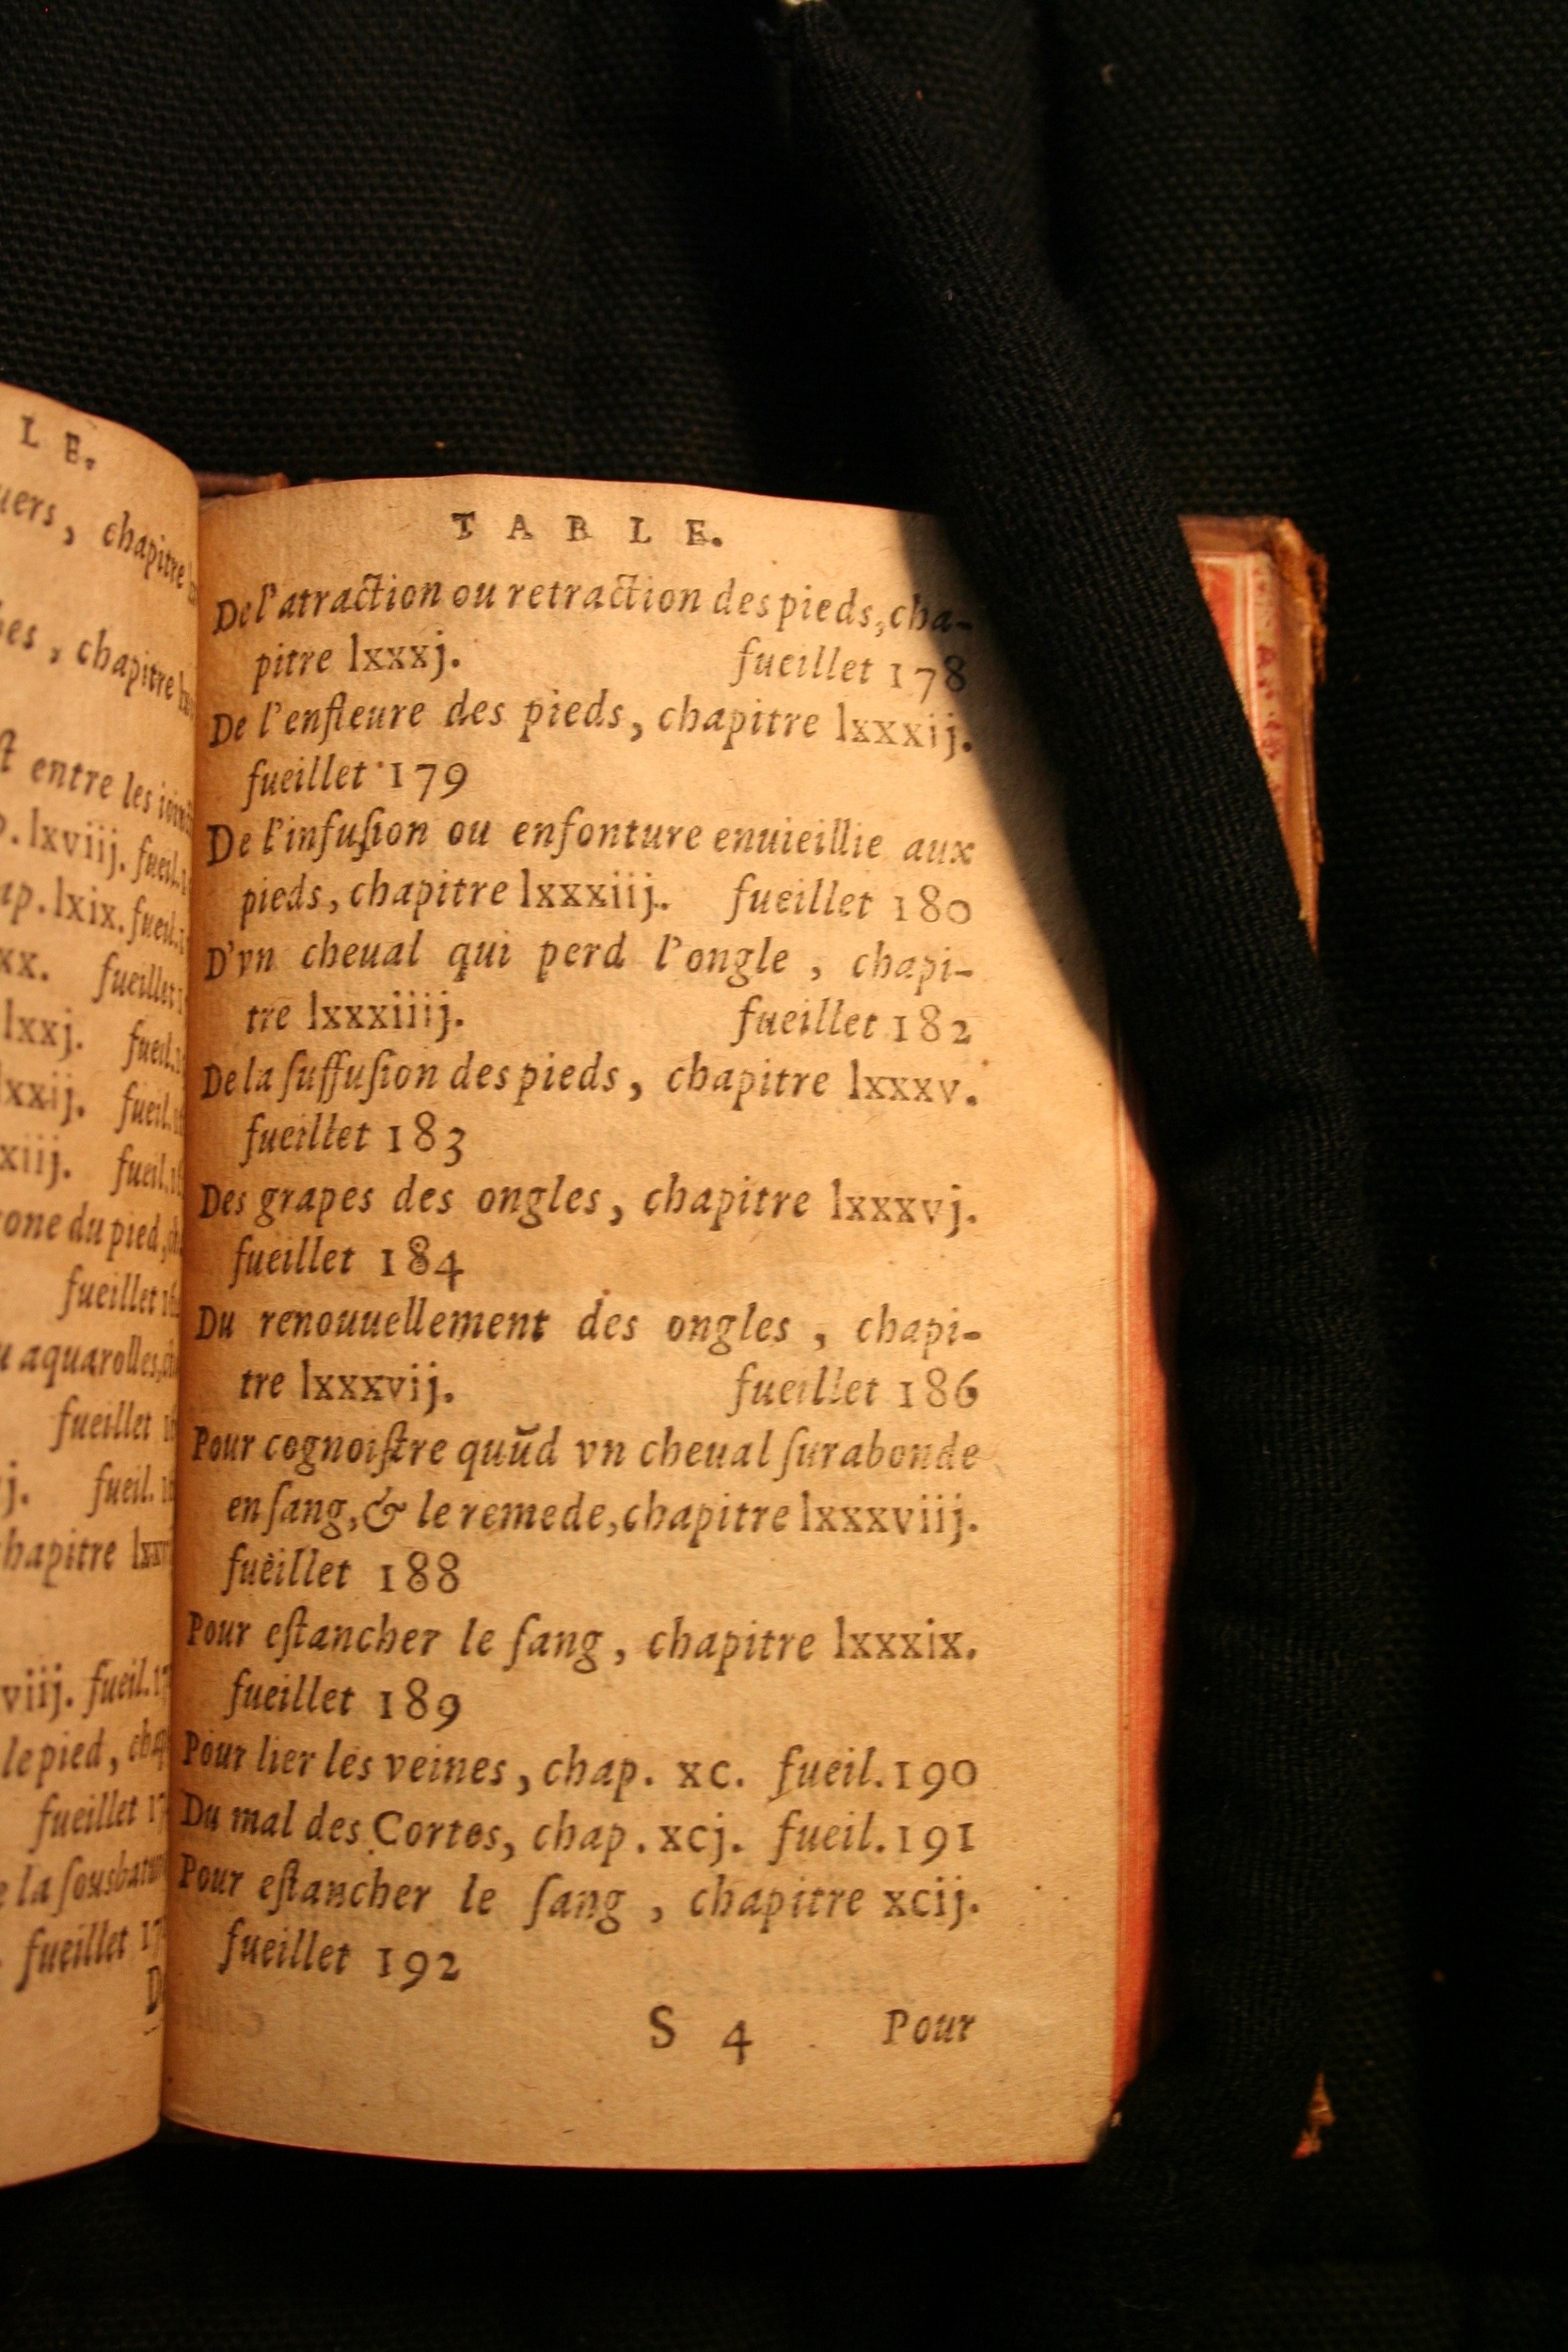 LE.
uers, chapitre
es, chapitre
entre les
lxviij. fueil.
ap. lxix. fueil.
xx. fueillet
lxxj. fueil.
xxij. fueil.
xiij. fueil.
one du pied,
fueillet
u aquarolles,
fueillet
j. fueil.
hapitre
viij. fueil.
le pied,
fueillet
la ſousbatu
fueillet
D
TABLE.
De l'atraction ou retraction des pieds, cha-
pitre lxxxj. fueillet 178
De l'enfleure des pieds, chapitre lxxxij.
fueillet 179
De l'infuſion ou enfonture enuieillie aux
pieds, chapitre lxxxiij. fueillet 180
D'vn cheual qui perd l'ongle, chapi-
tre lxxxiiij. fueillet 182
De la ſuffuſion des pieds, chapitre lxxxv.
fueillet 183
Des grapes des ongles, chapitre lxxxvj.
fueillet 184
Du renouuellement des ongles, chapi-
tre lxxxvij. fueillet 186
Pour cognoiſtre quũd vn cheual ſurabonde
en ſang, & le remede, chapitre lxxxviij.
fueillet 188
Pour eſtancher le ſang, chapitre lxxxix.
fueillet 189
Pour lier les veines, chap. xc. fueil. 190
Du mal des Cortes, chap. xcj. fueil. 191
Pour eſtancher le ſang, chapitre xcij.
fueillet 192
S 4 Pour